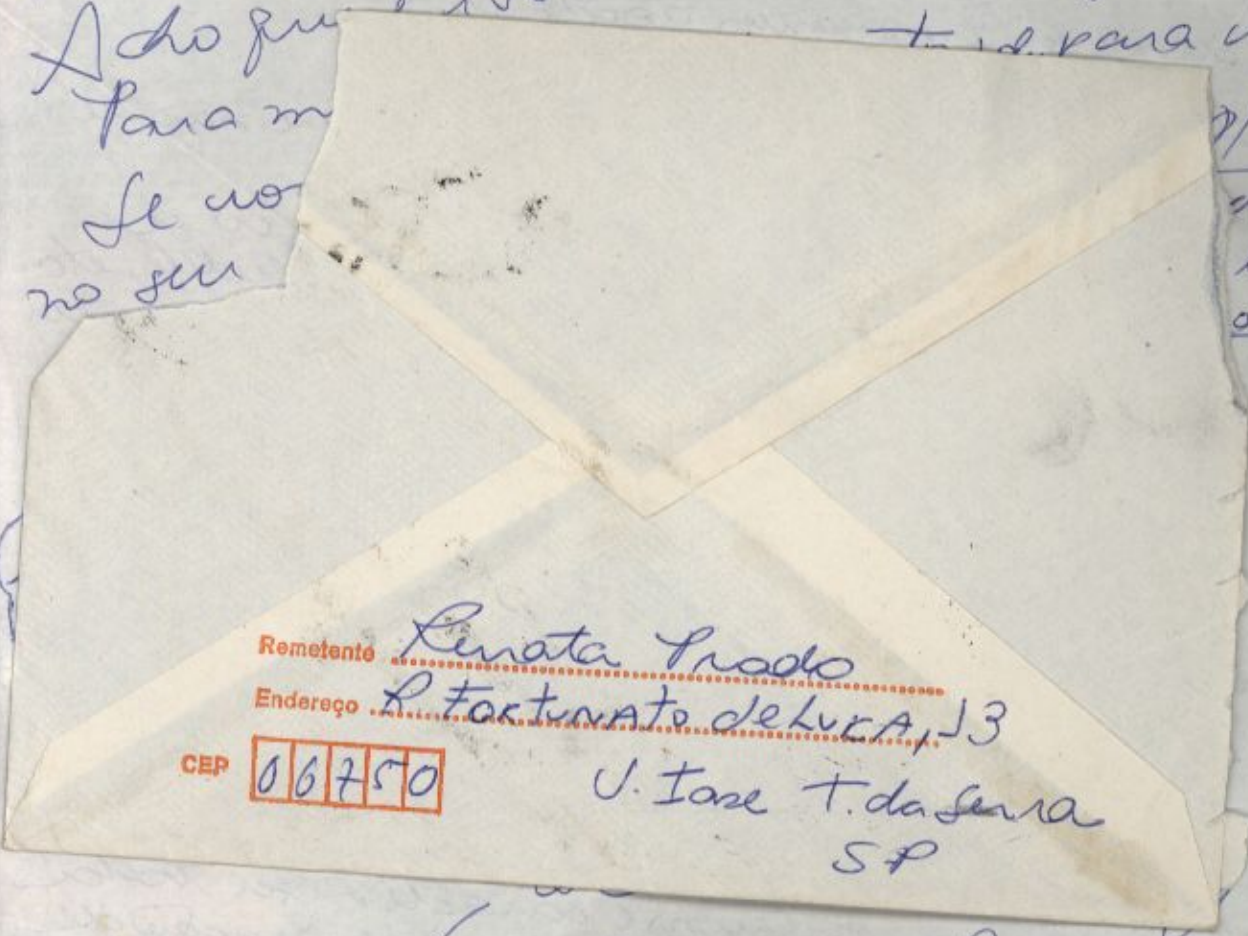 Acho que
para
Para m
Se vo
no seu
Remetente Renata Prado
Endereço R. Fortunato de Luca, 13
CEP 06750
V. Iase T. da Serra
SP